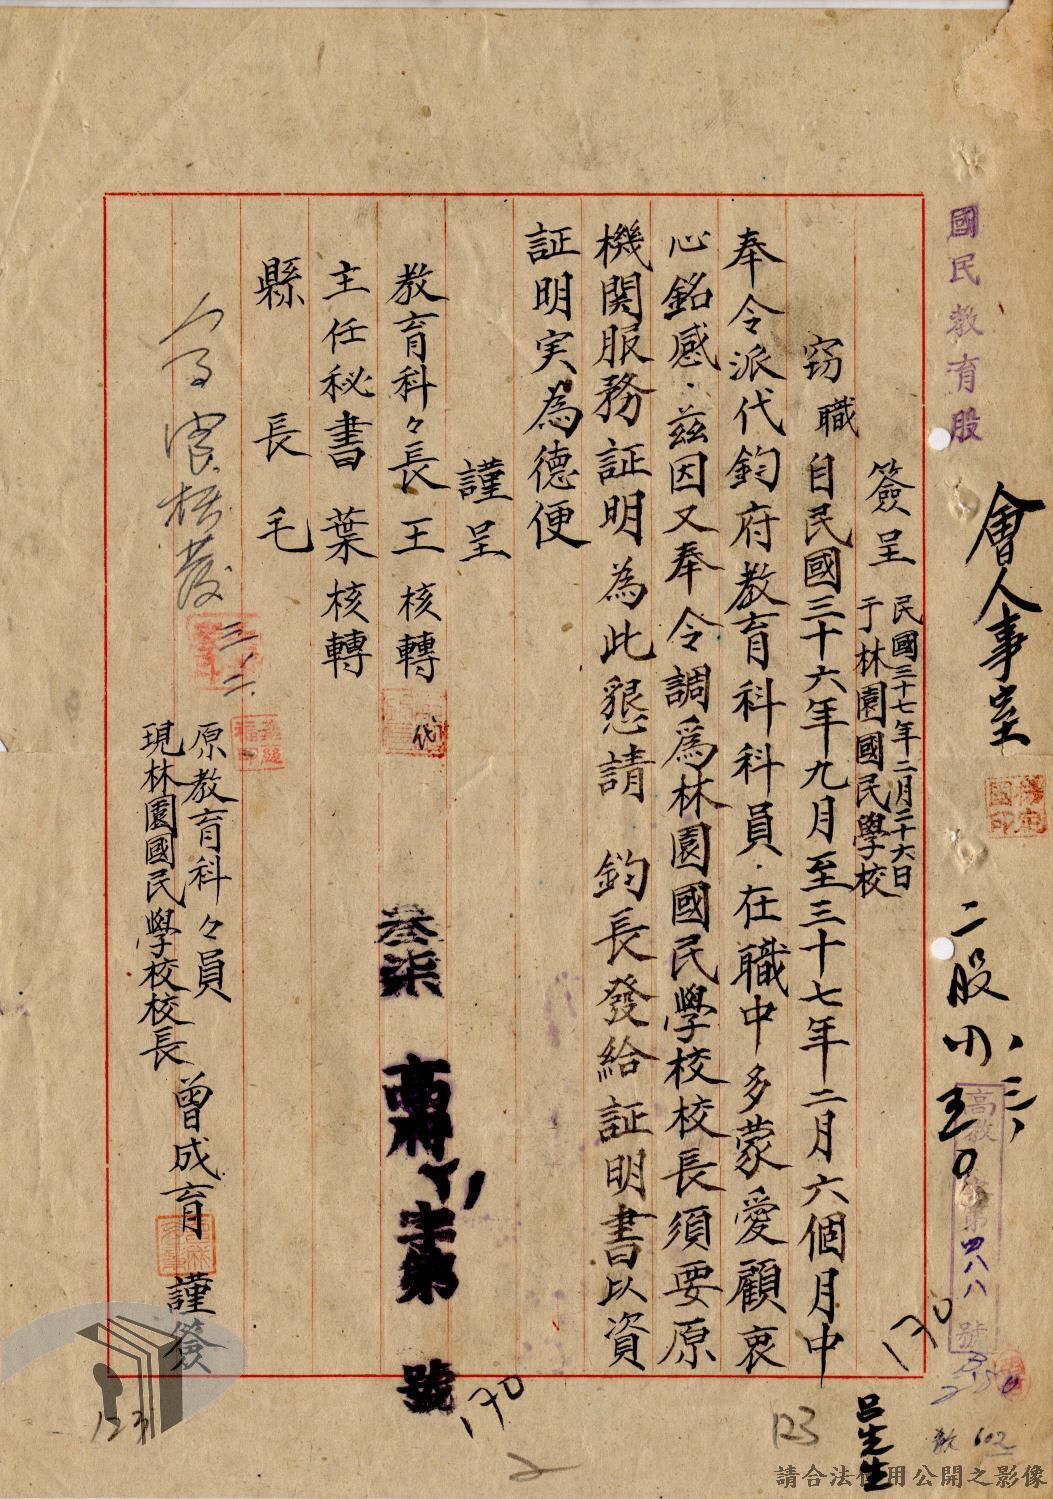 國民教育股
會人事室
二股
高教
第四八八號
170
簽呈
民國三十七年二月二十六日
于林園國民學校
窃職自民國三十六年九月至三十七年二月六個月中
奉令派代鈞府教育科科員．在職中多蒙愛顧衷
心銘感．茲因又奉令調為林園國民學校校長須要原
機関服務証明為此懇請 鈞長發給証明書以資
証明実為德便
謹呈
教育科々長王核轉
代
主任秘書葉核轉
縣長毛
三.二.
叁柒 字第 號
170
原教育科々員
現林園國民學校校長
曾成育 謹簽
呂先生
123
602
請合法使用公開之影像